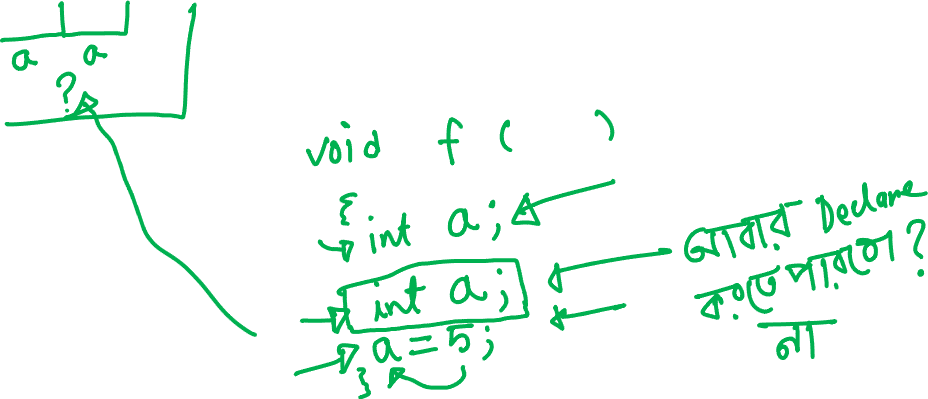 a a
?
void f ( )
{ int a;
int a;
a = 5;
}
আবার Declare
করতে পারবো?
না